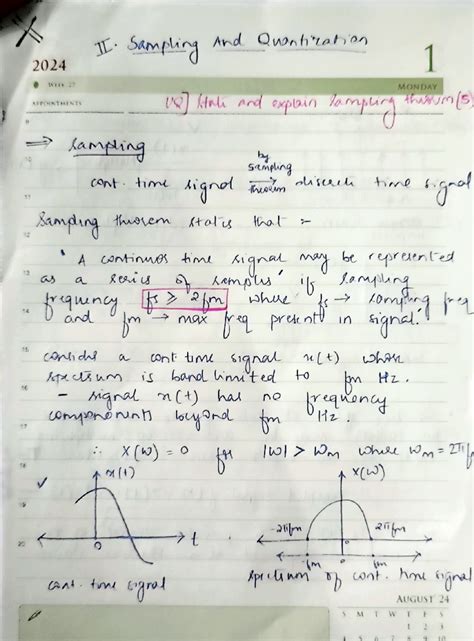 II. Sampling And Quantization
2024
1
WEEK 27
MONDAY
APPOINTMENTS
UQ] State and explain Sampling theorem (5)
⇒ Sampling
cont. time signal by sampling theorem → discrete time signal
Sampling theorem states that :-
"A continuos time signal may be represented
as a series of samples" if sampling
frequency fs ≥ 2fm where fs → sampling freq
and fm → max freq present in signal.
consider a cont time signal x(t) whose
spectrum is band limited to fm Hz.
- signal x(t) has no frequency
components beyond fm Hz.
∴ X(w) = 0 for |w| > wm where wm = 2πf
x(t)
X(w)
-2πfm
2πfm
0
t
0
-fm
fm
cont. time signal
spectrum of cont. time signal
AUGUST 24
S M T W T F S
1 2 3